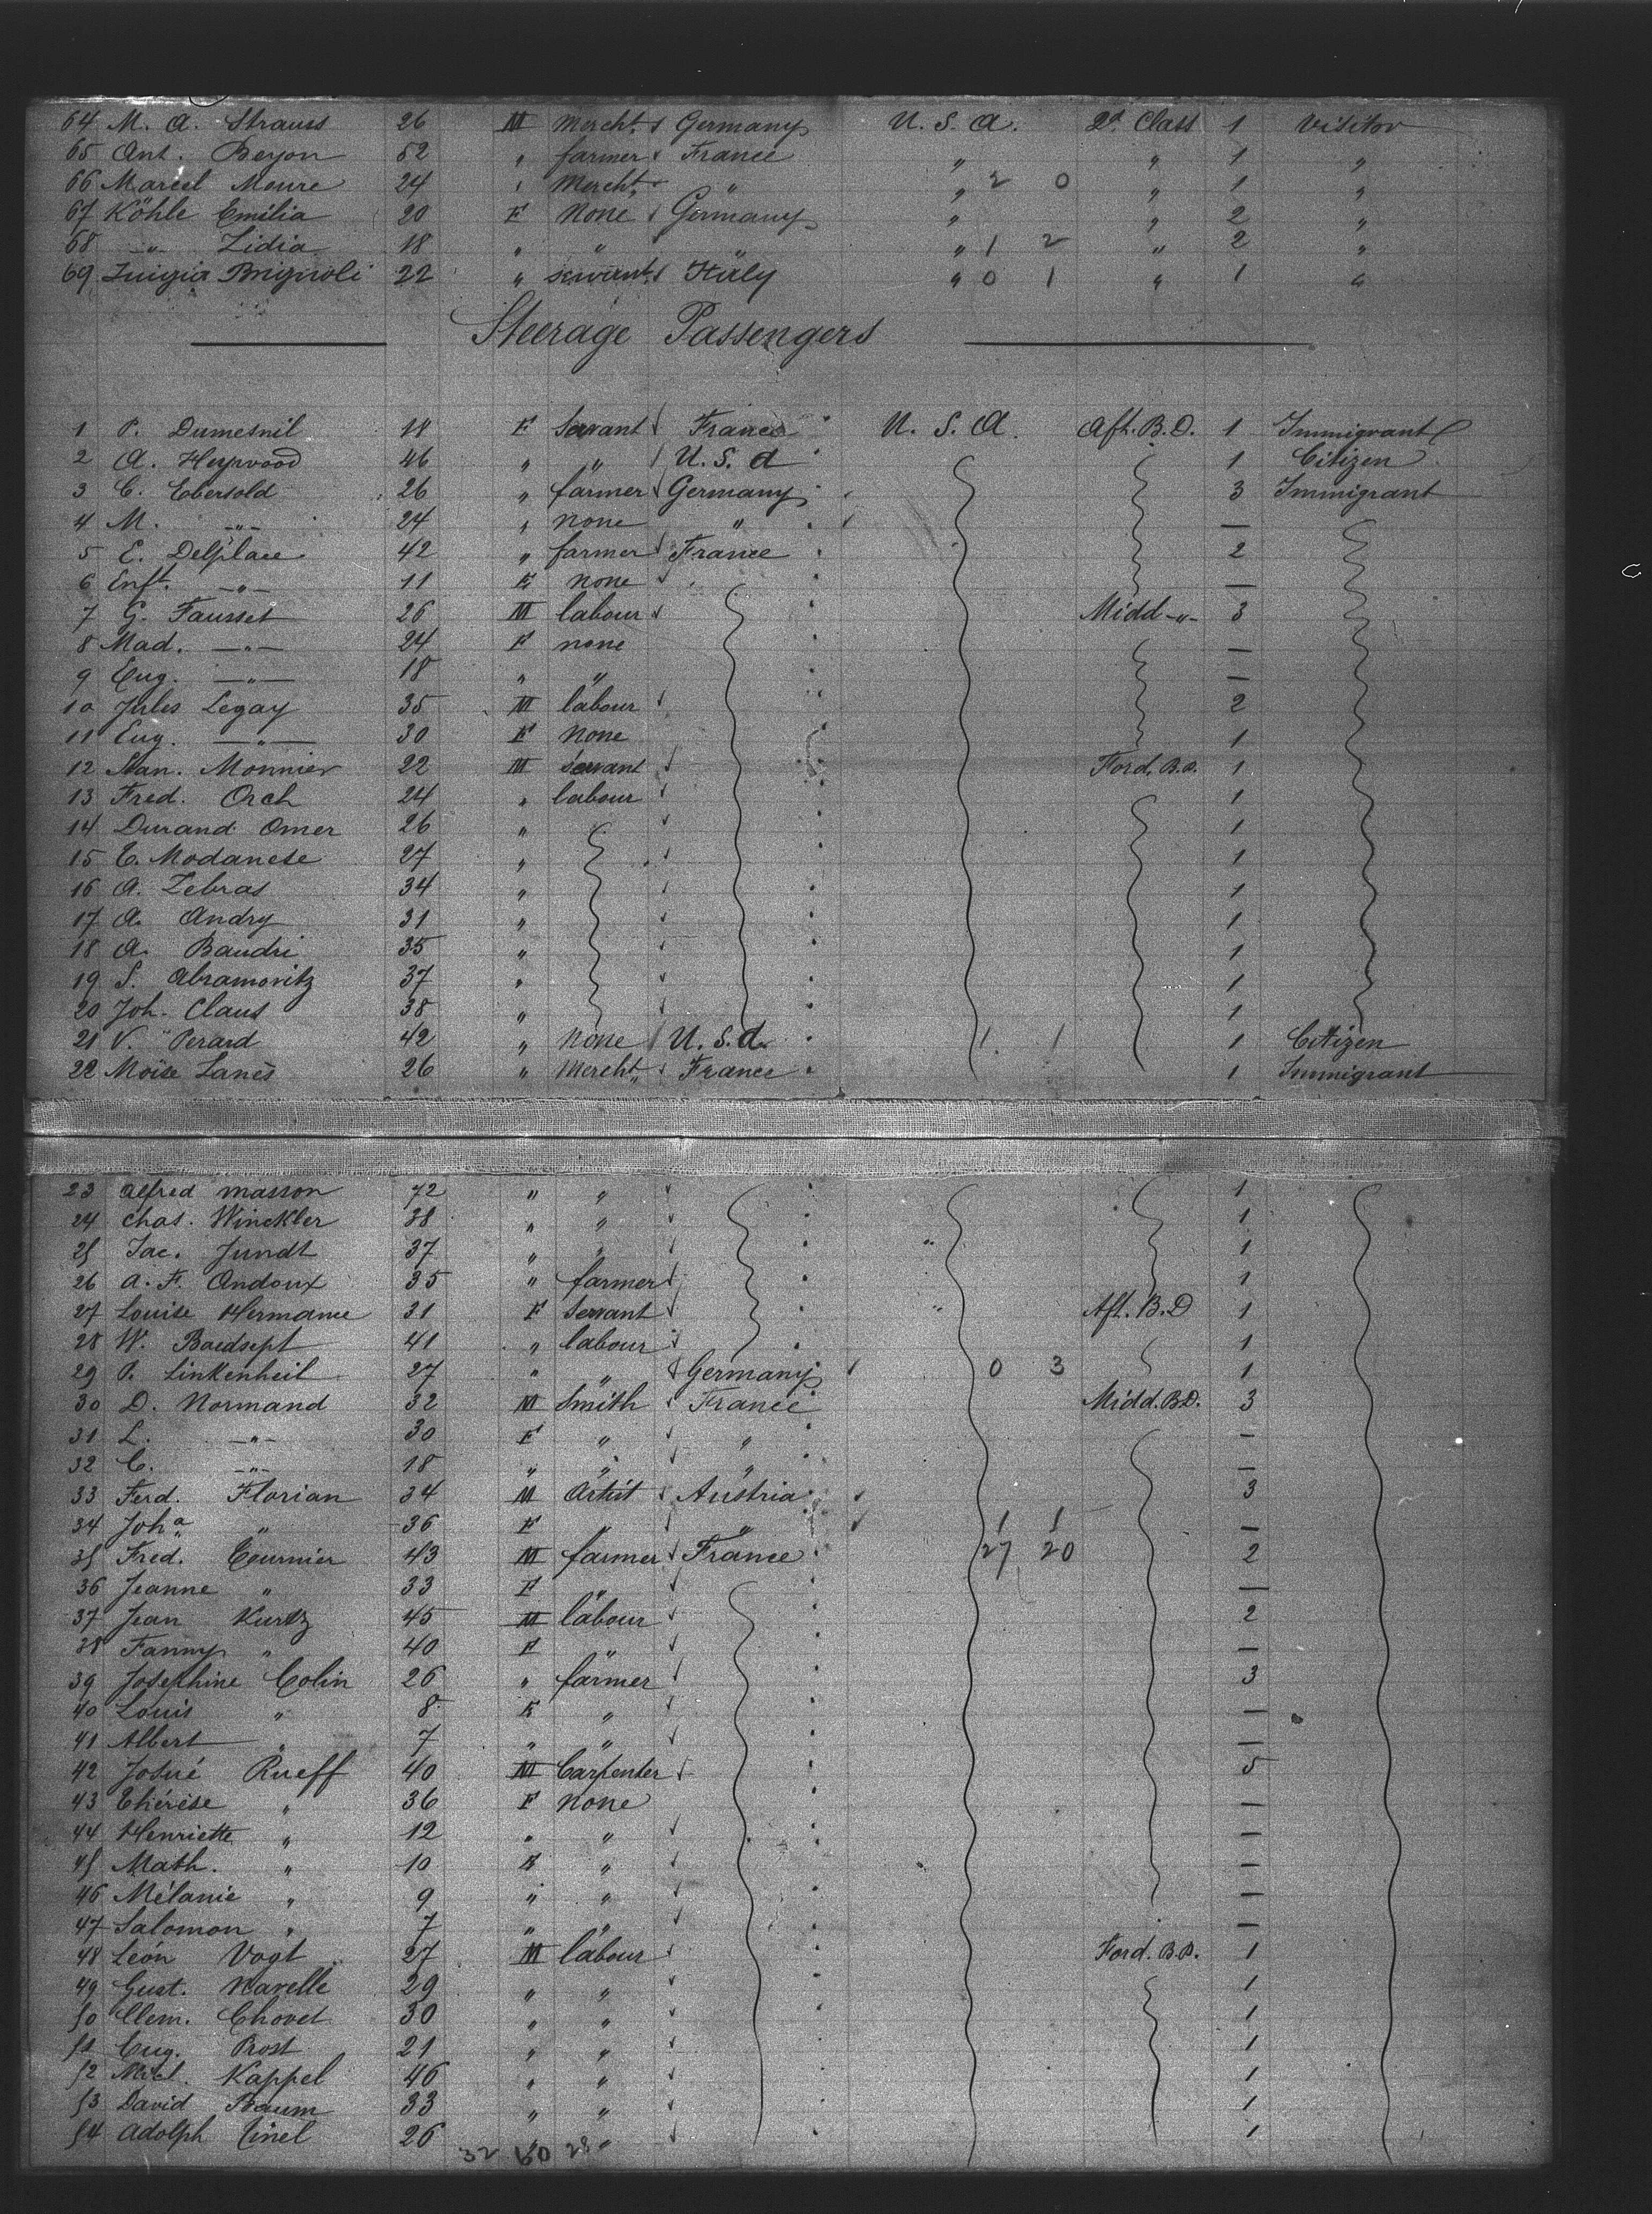 64 M. A. Strauss 26 M Mercht. Germany U. S. A. 2d. Class 1 Visitor
65 Ant. Beyon 52 " farmer France " " 1 "
66 Marcel Moure 24 " Mercht. " " 2 0 " 1 "
67 Köhle Emilia 20 F None Germany " " 2 "
68 -"- Lidia 18 " " " " 1 2 " 2 "
69 Luigia Brignoli 22 " servant Italy " 0 1 " 1 "
Steerage Passengers
1 P. Dumesnil 18 F Servant France U. S. A. Aft. B. D. 1 Immigrant
2 A. Heywood 46 " " U. S. A 1 Citizen
3 C. Ebersold 26 " farmer Germany 3 Immigrant
4 M. -"- 24 " none " —
5 E. Delplace 42 " farmer France 2
6 Enft. -"- 11 E none —
7 G. Fausset 26 M labour Midd -"- 3
8 Mad. -"- 24 F none —
9 Eug. -"- 18 " " —
10 Jules Legay 35 M labour 2
11 Eug. -"- 30 F None 1
12 Stan. Monnier 22 M Servant Ford. B.D. 1
13 Fred. Orch 24 " labour 1
14 Durand Omer 26 " 1
15 E. Modanese 27 " 1
16 A. Zebras 34 " 1
17 A. Andry 31 " 1
18 A. Baudri 35 " 1
19 S. Abramovitz 37 " 1
20 Joh. Claus 38 " 1
21 V. Perard 42 " None U. S. A. 1 1 1 Citizen
22 Moïse Lanes 26 " Mercht. France 1 Immigrant
23 Alfred Masson 42 " " 1
24 Chas. Winckler 38 " " 1
25 Jac. Jundt 37 " " 1
26 A. F. Andoux 35 " farmer 1
27 Louise Hermance 31 F Servant Aft. B. D 1
28 W. Baedsept 41 " labour 1
29 P. Linkenheil 27 " " Germany 0 3 1
30 D. Normand 32 M Smith France Midd. B.D. 3
31 L. -"- 30 F " " —
32 C. -"- 18 " " " —
33 Ferd. Florian 34 M Artist Austria 3
34 Joha " 36 F " " 1 1 —
35 Fred. Tournier 43 M farmer France 27 20 2
36 Jeanne " 33 F " —
37 Jean Kurtz 45 M labour 2
38 Fanny " 40 F " —
39 Josephine Colin 26 " farmer 3
40 Louis " 8 E " —
41 Albert " 7 " " —
42 Josué Rueff 40 M Carpenter 5
43 Thérèse " 36 F None —
44 Henriette " 12 " " —
45 Math. " 10 E " —
46 Mélanie " 9 " " —
47 Salomon " 7 " " —
48 Léon Vogt 27 M labour Ford. B.D. 1
49 Gust. Navelle 29 " " 1
50 Clem. Chovet 30 " " 1
51 Eug. Prost 21 " " 1
52 Mich. Kappel 46 " " 1
53 David Baum 33 " " 1
54 Adolph Tinel 26 " " 1
32 60 28